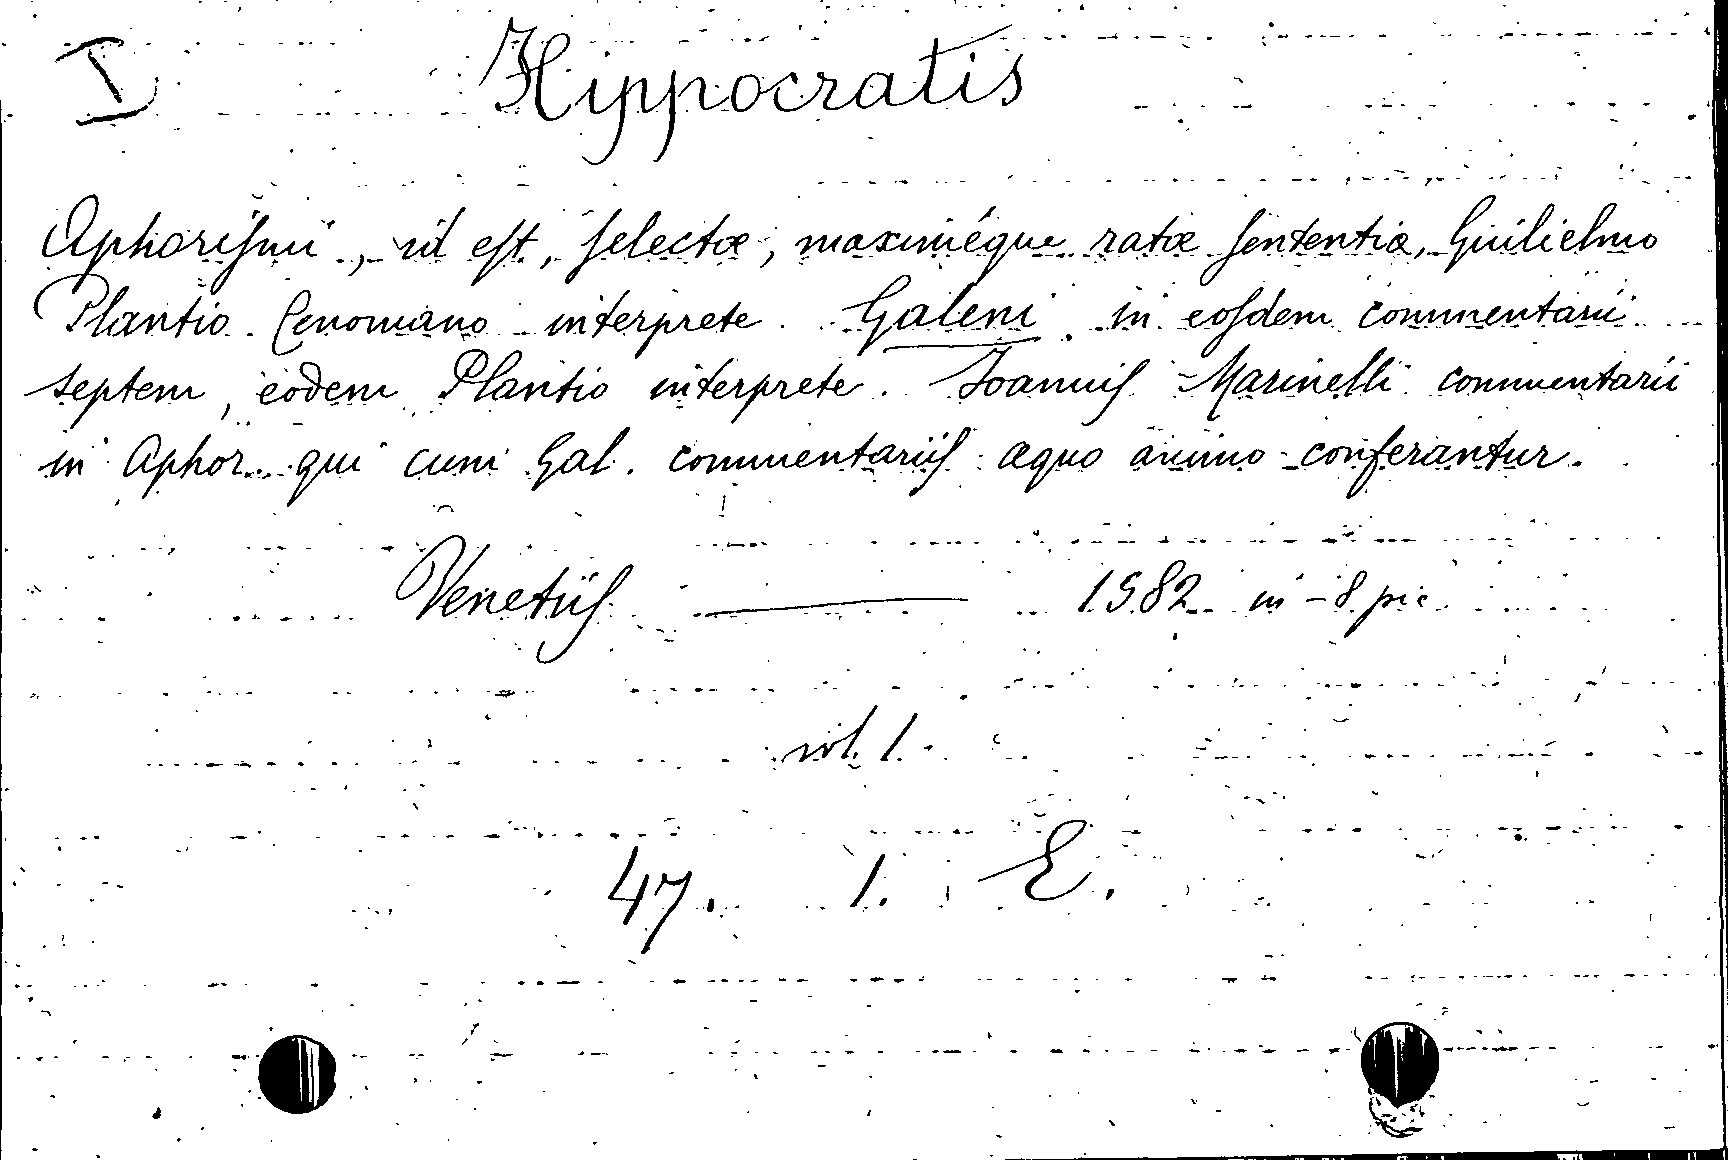 I Hippocratis
Aphoriſmi, id eſt, ſelectæ, maximéque ratæ ſententiæ, Guilielmo
Plantio Cenomano interprete. Galeni in eoſdem commentarii
septem, eodem Plantio interprete. Joanniſ Marinelli commentarii
in Aphor. qui cum Gal. commentariiſ æquo animo conferantur.
Venetiiſ — 1582 in-8 pic
vol. 1.
47. 1. E.